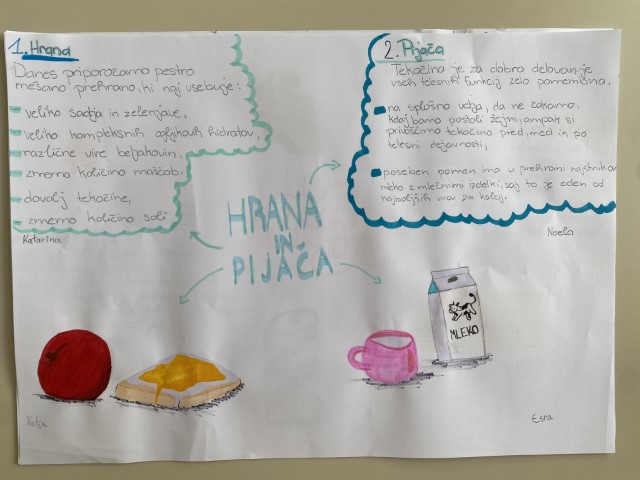 1. Hrana
Danes priporočamo pestro
mešano prehrano, ki naj vsebuje:
veliko sadja in zelenjave,
veliko kompleksnih ogljikovih hidratov,
različne vire beljakovin,
zmerno količino maščob,
dovolj tekočine,
zmerno količino soli
Katarina
2. Pijača
Tekočina je za dobro delovanje
vseh telesnih funkcij zelo pomembna.
na splošno velja, da ne čakamo,
kdaj bomo postali žejni, ampak si
privoščimo tekočino pred, med in po
telesni dejavnosti,
poseben pomen ima v prehrani najstnikov
mleko z mlečnimi izdelki, saj to je eden od
najboljših virov za kalcij.
Noela
HRANA
IN
PIJAČA
MLEKO
Katja
Esra